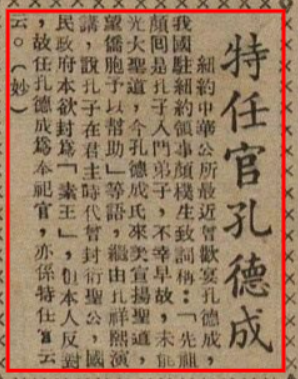 特任官孔德成
紐約中華公所最近曾歡宴孔德成，
我國駐紐約領事顏樸生致詞稱：「先祖
顏回是孔子入門弟子，不幸早故，未能
光大聖道，今孔德成氏來美宣揚聖道，
望僑胞予以幫助」等語，繼由孔祥熙演
講，說孔子在君主時代曾封衍聖公，國
民政府本欲封爲「素王」，但本人反對
，故任孔德成爲奉祀官，亦係特任官云
云。（妙）